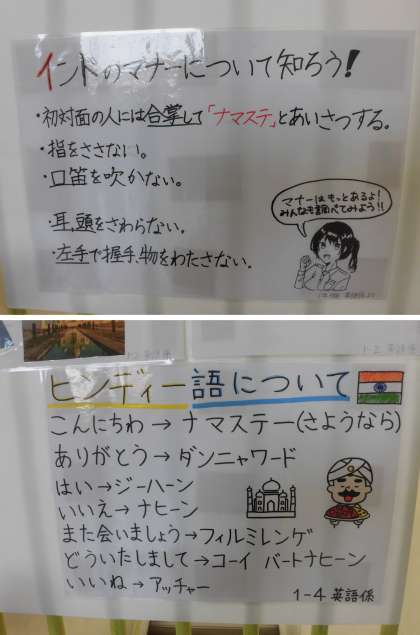 インドのマナーについて知ろう!
・初対面の人には合掌して「ナマステ」とあいさつする。
・指をささない。
・口笛を吹かない。
・耳、頭をさわらない。
・左手で握手、物をわたさない。
マナーはもっとあるよ!
みんなも調べてみよう!!
ヒンディー語について
こんにちわ→ナマステー(さようなら)
ありがとう→ダンニャワード
はい→ジーハーン
いいえ→ナヒーン
また会いましょう→フィルミレンゲ
どういたしまして→コーイ バートナヒーン
いいね→アッチャー
1-4 英語係